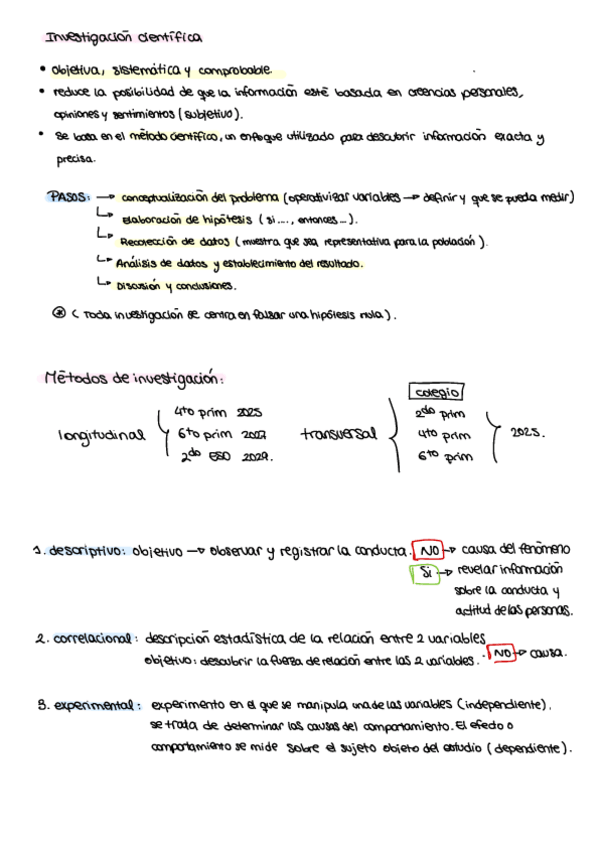 Investigación científica
• objetiva, sistemática y comprobable.
• reduce la posibilidad de que la información esté basada en creencias personales,
opiniones y sentimientos (subjetivo).
• Se basa en el método científico, un enfoque utilizado para descubrir información exacta y
precisa.
PASOS: → conceptualización del problema (operativizar variables → definir y que se pueda medir)
↳ Elaboración de hipótesis (si ...., entonces ...).
↳ Recolección de datos (muestra que sea representativa para la población).
↳ Análisis de datos y establecimiento del resultado.
↳ Discusión y conclusiones.
⊛ (Toda investigación se centra en falsar una hipótesis nula).
Métodos de investigación:
longitudinal
4to prim 2025
6to prim 2027
2do ESO 2029.
transversal
colegio
2do prim
4to prim
6to prim
2025.
1. descriptivo: objetivo → observar y registrar la conducta. NO → causa del fenómeno
Si → revelar información
sobre la conducta y
actitud de las personas.
2. correlacional: descripción estadística de la relación entre 2 variables
objetivo: descubrir la fuerza de relación entre las 2 variables. NO → causa.
3. experimental: experimento en el que se manipula una de las variables (independiente).
se trata de determinar las causas del comportamiento. El efecto o
comportamiento se mide sobre el sujeto objeto del estudio (dependiente).